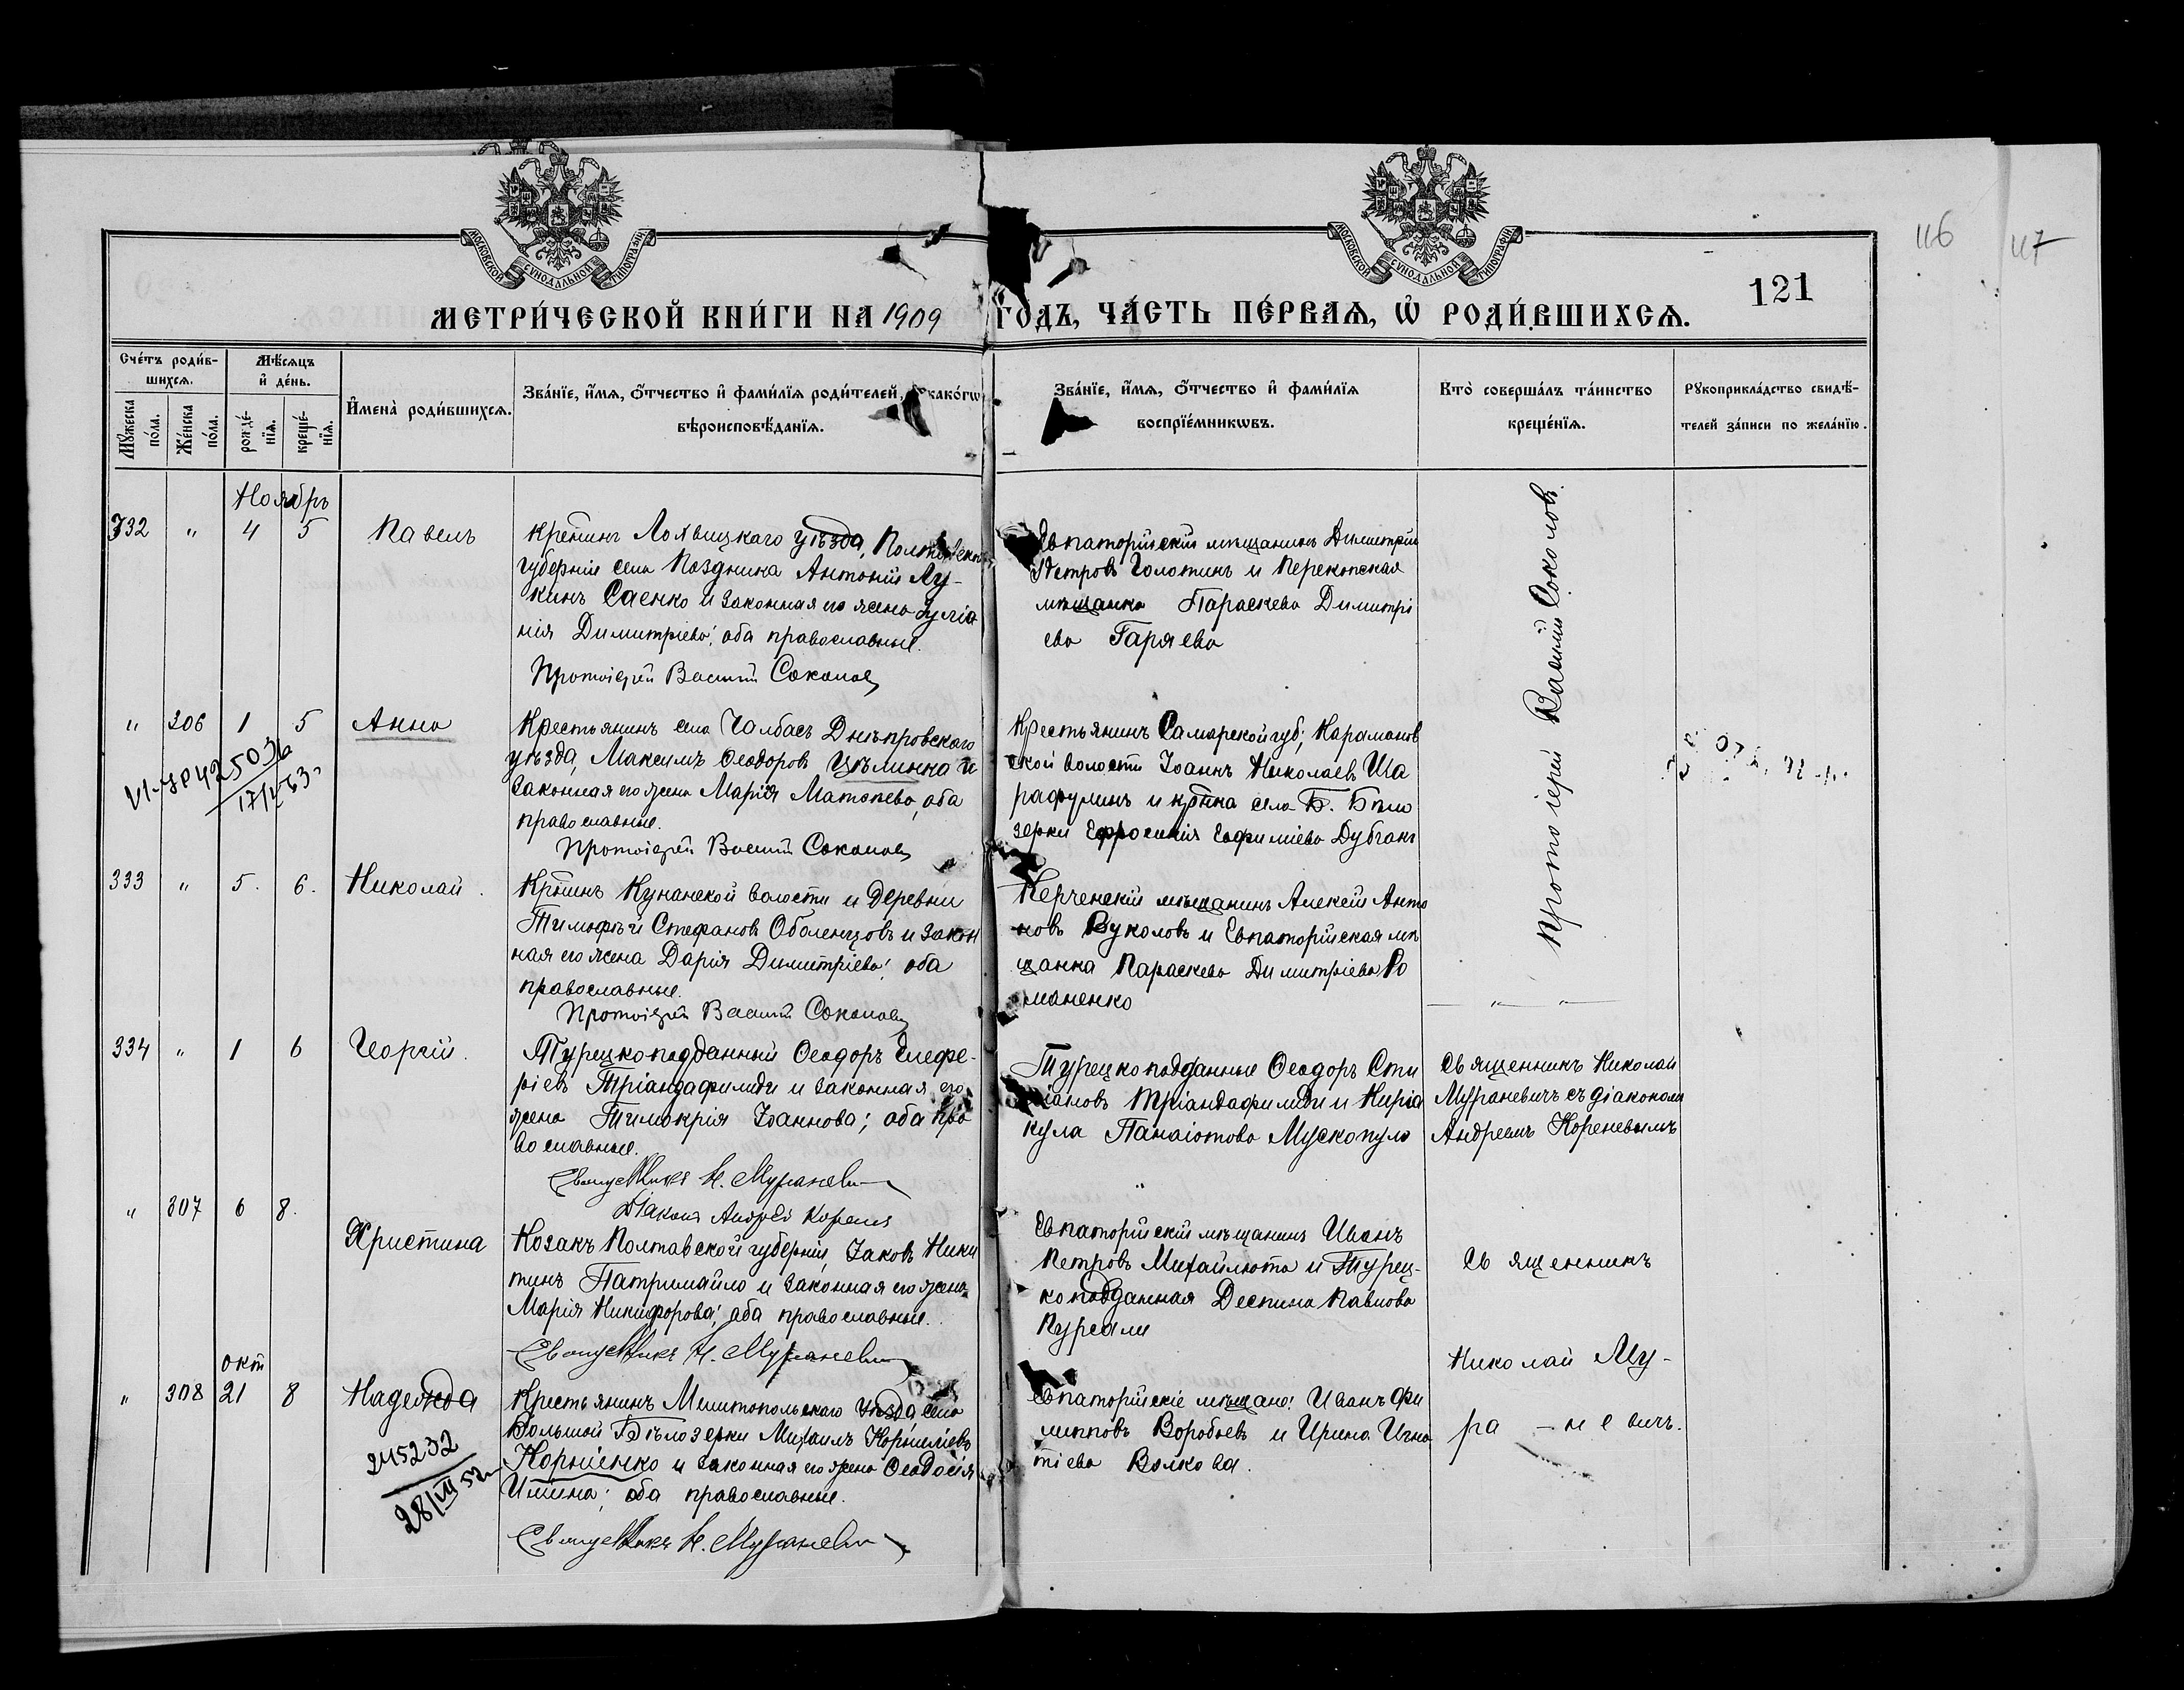 МОСКОВСКОЙ СУНОДАЛЬНОЙ ТИПОГРАФІИ
МОСКОВСКОЙ СУНОДАЛЬНОЙ ТИПОГРАФІИ
116
117
121
МЕТРИ́ЧЕСКОЙ КНИ́ГИ НА 1909 ГОДЪ, ЧА́СТЬ ПЕ́РВАѦ, Ѡ҆ РОДИ́ВШИХСѦ.
Сче́тъ роди́в-
шихсѧ.
Мѣ́сѧцъ
и҆ де́нь.
И҆мена̀ роди́вшихсѧ.
Зва́нїе, и҆́мѧ, ѻ҆́тчество и҆ фами́лїѧ роди́телей, како́гѡ
вѣроисповѣ́данїѧ.
Мꙋ́жеска по́ла.
Же́нска по́ла.
рожде́-нїѧ.
креще́-нїѧ.
Зва́нїе, и҆́мѧ, ѻ҆́тчество и҆ фами́лїѧ
воспрїе́мникѡвъ.
Кто̀ соверша́лъ та́инство
креще́нїѧ.
Рꙋкоприкла́дство свидѣ́-
телей за́писи по жела́нїю.
Ноябрь
332 " 4 5 Павелъ
Крестинъ Лохвицкаго уѣзда, Полтавской
губерніи села Позднина Антоній Лу-
кинъ Саенко и законная его жена Іуліа
нія Димитріева; оба православные.
Протоіерей Василій Соколовъ
Евпаторійскій мѣщанинъ Димитрій
Петровъ Голотинъ и Перекопская
мѣщанка Параскева Димитрі
ева Гаряева
Протоіерей Василій Соколовъ.
" 306 1 5 Анна
Крестьянинъ села Чалбасъ Днѣпровскаго
уѣзда, Максимъ Ѳеодоровъ Цѣлинка и
законная его жена Марія Матѳеева, оба
православные.
Протоіерей Василій Соколовъ
Крестьянинъ Самарской губ; Караманов
ской волости Іоаннъ Николаевъ Ша
рафулинъ и крѣтка села Б. Бѣло
зерки Ефросинія Евфиміева Дубганъ
333 " 5. 6. Николай.
Крѣтинъ Кунанской волости и деревни
Тимоѳей Стефановъ Оболенцовъ и закон
ная его жена Дарія Димитріева; оба
православные.
Протоіерей Василій Соколовъ
Керченскій мѣщанинъ Алексѣй Анто
новъ Вуколовъ и Евпаторійская мѣ
щанка Параскева Димитріева Ро
маненко
334 " 1 6 Георгій.
Турецкоподданный Ѳеодоръ Елефе-
ріевъ Тріандафилиди и законная его
жена Тимокрія Іоаннова; оба пра
вославные.
Священникъ Н. Мураневичъ
Діаконъ Андрей Кореневъ
Турецкоподданные Ѳеодоръ Сти
ліановъ Тріандафилиди и Киріа
кула Панаіотова Мускопуло
Священникъ Николай
Мураневичъ съ діакономъ
Андреемъ Кореневымъ
" 307 6 8. Христина
Козакъ Полтавской губерніи, Іаковъ Ники
тинъ Патримайло и законная его жена
Марія Никифорова; оба православные.
Священникъ Н. Мураневичъ
Евпаторійскій мѣщанинъ Иванъ
Петровъ Михайлюта и Турец-
коподданная Деспина Павлова
Пурсали
Священникъ
Николай Му-
ра-невичъ.
окт
" 308 21 8 Надежда
Крестьянинъ Мелитопольскаго уѣзда, села
Большой Бѣлозерки Михаилъ Корниліевъ
Корніенко и законная его жена Ѳеодосія
Илина; оба православные.
Священникъ Н. Мураневичъ
245232
28/VII 52
Евпаторійскіе мѣщане: Иванъ Фи
липповъ Воробьевъ и Ирина Игна
тіева Волкова.